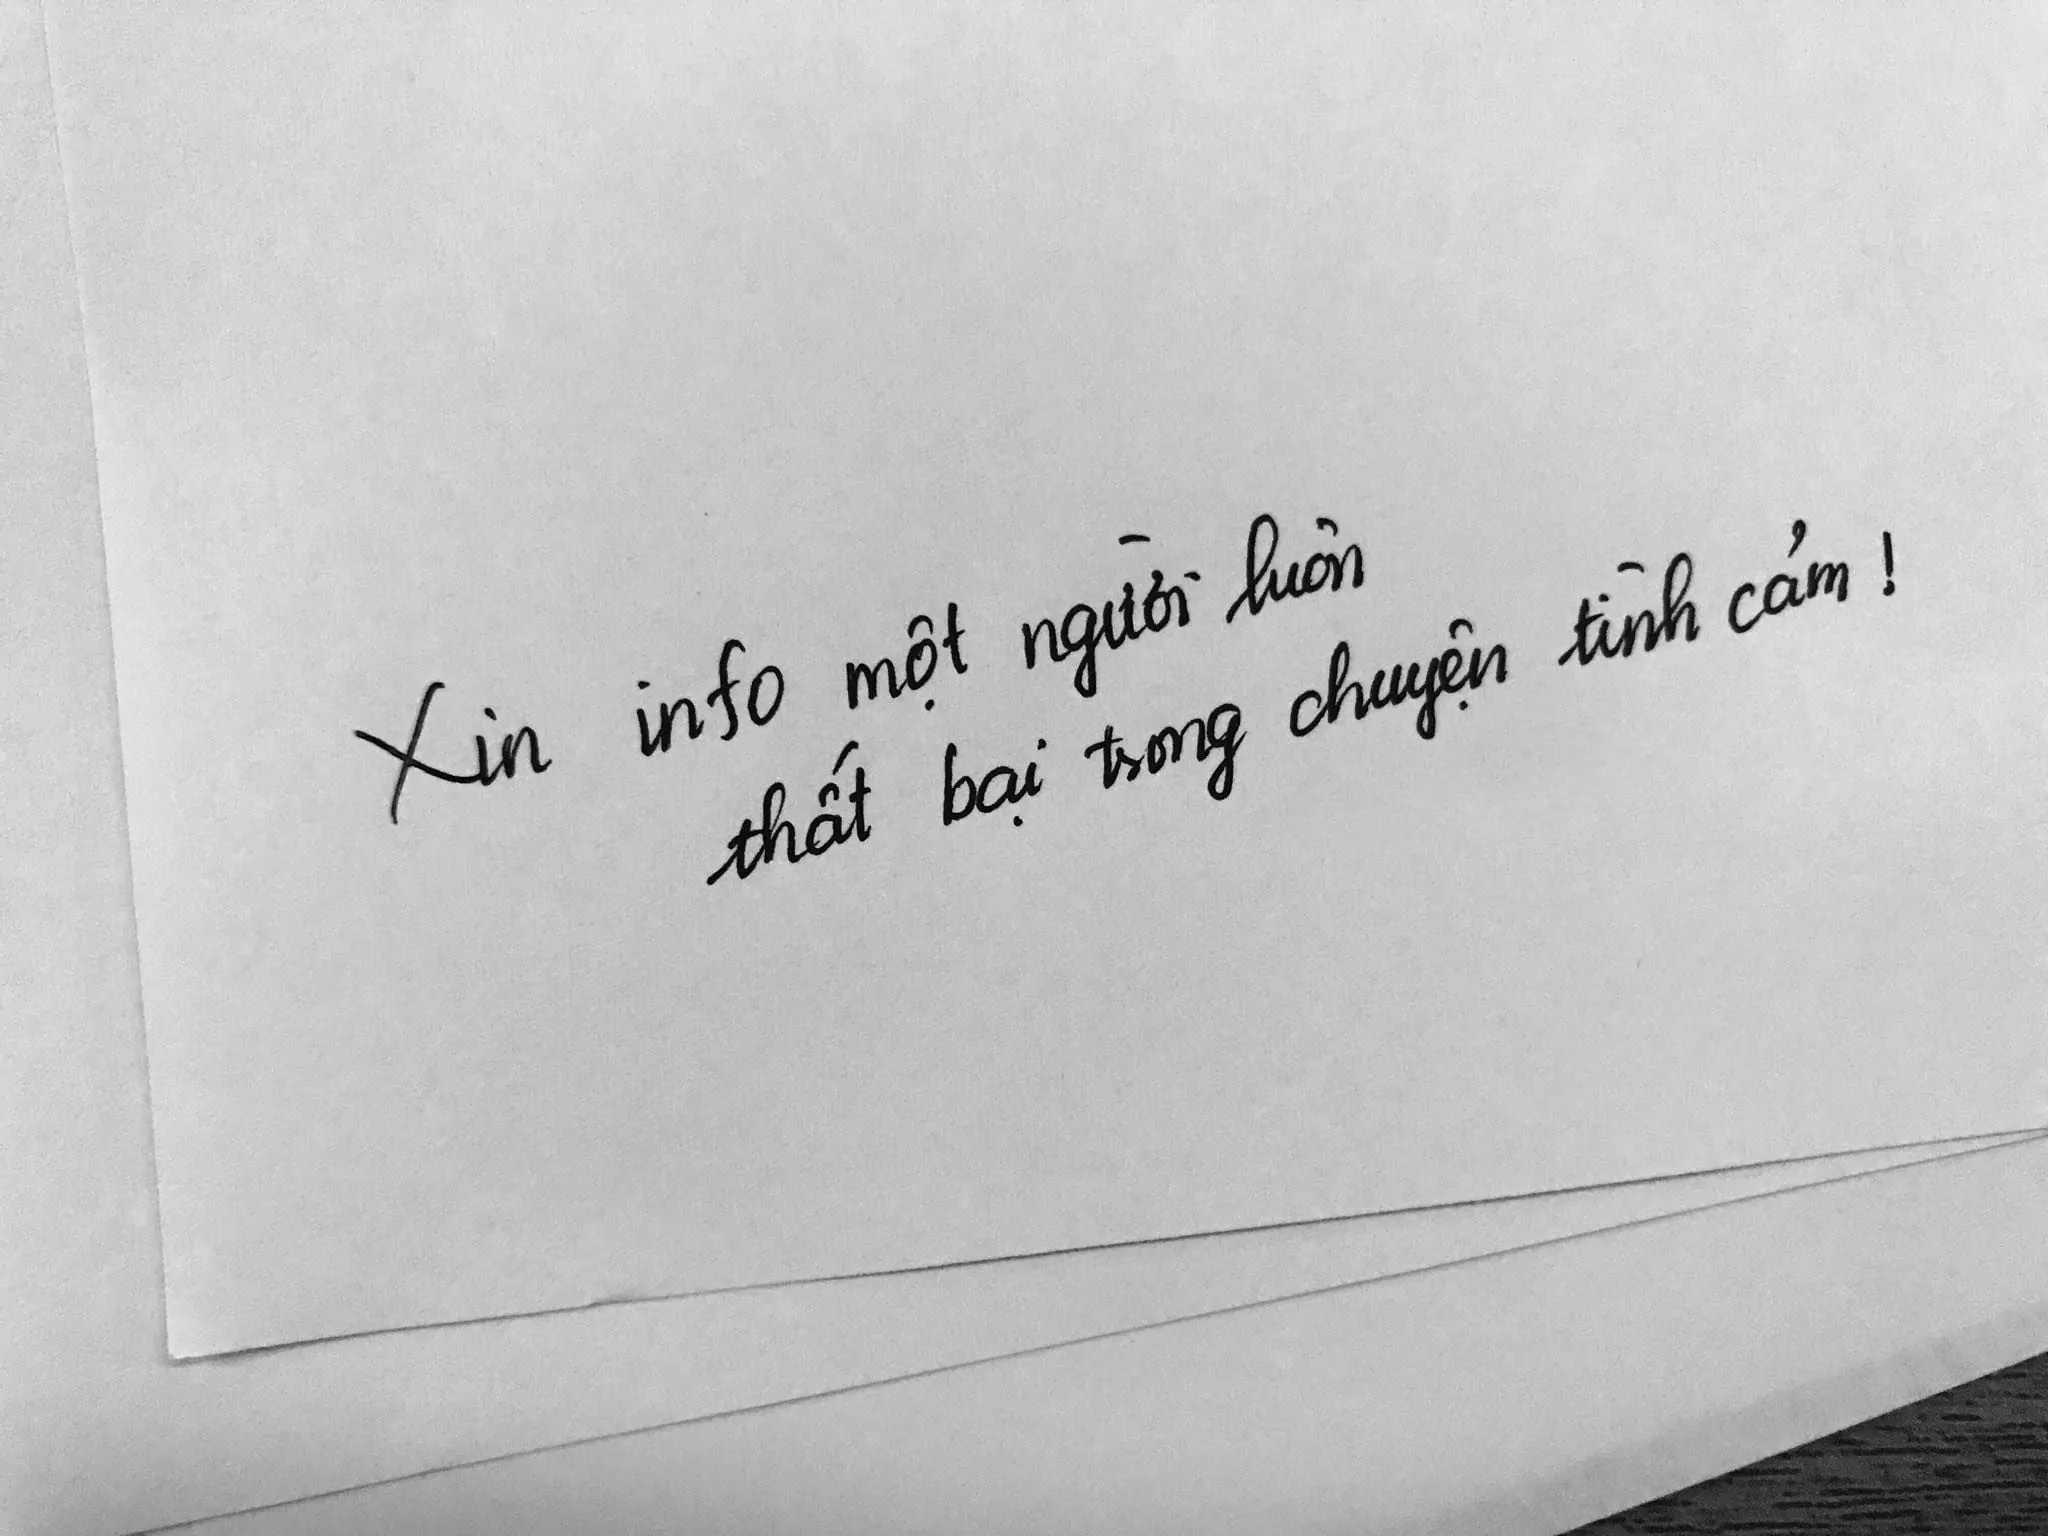 Xin info một người luôn
thất bại trong chuyện tình cảm!